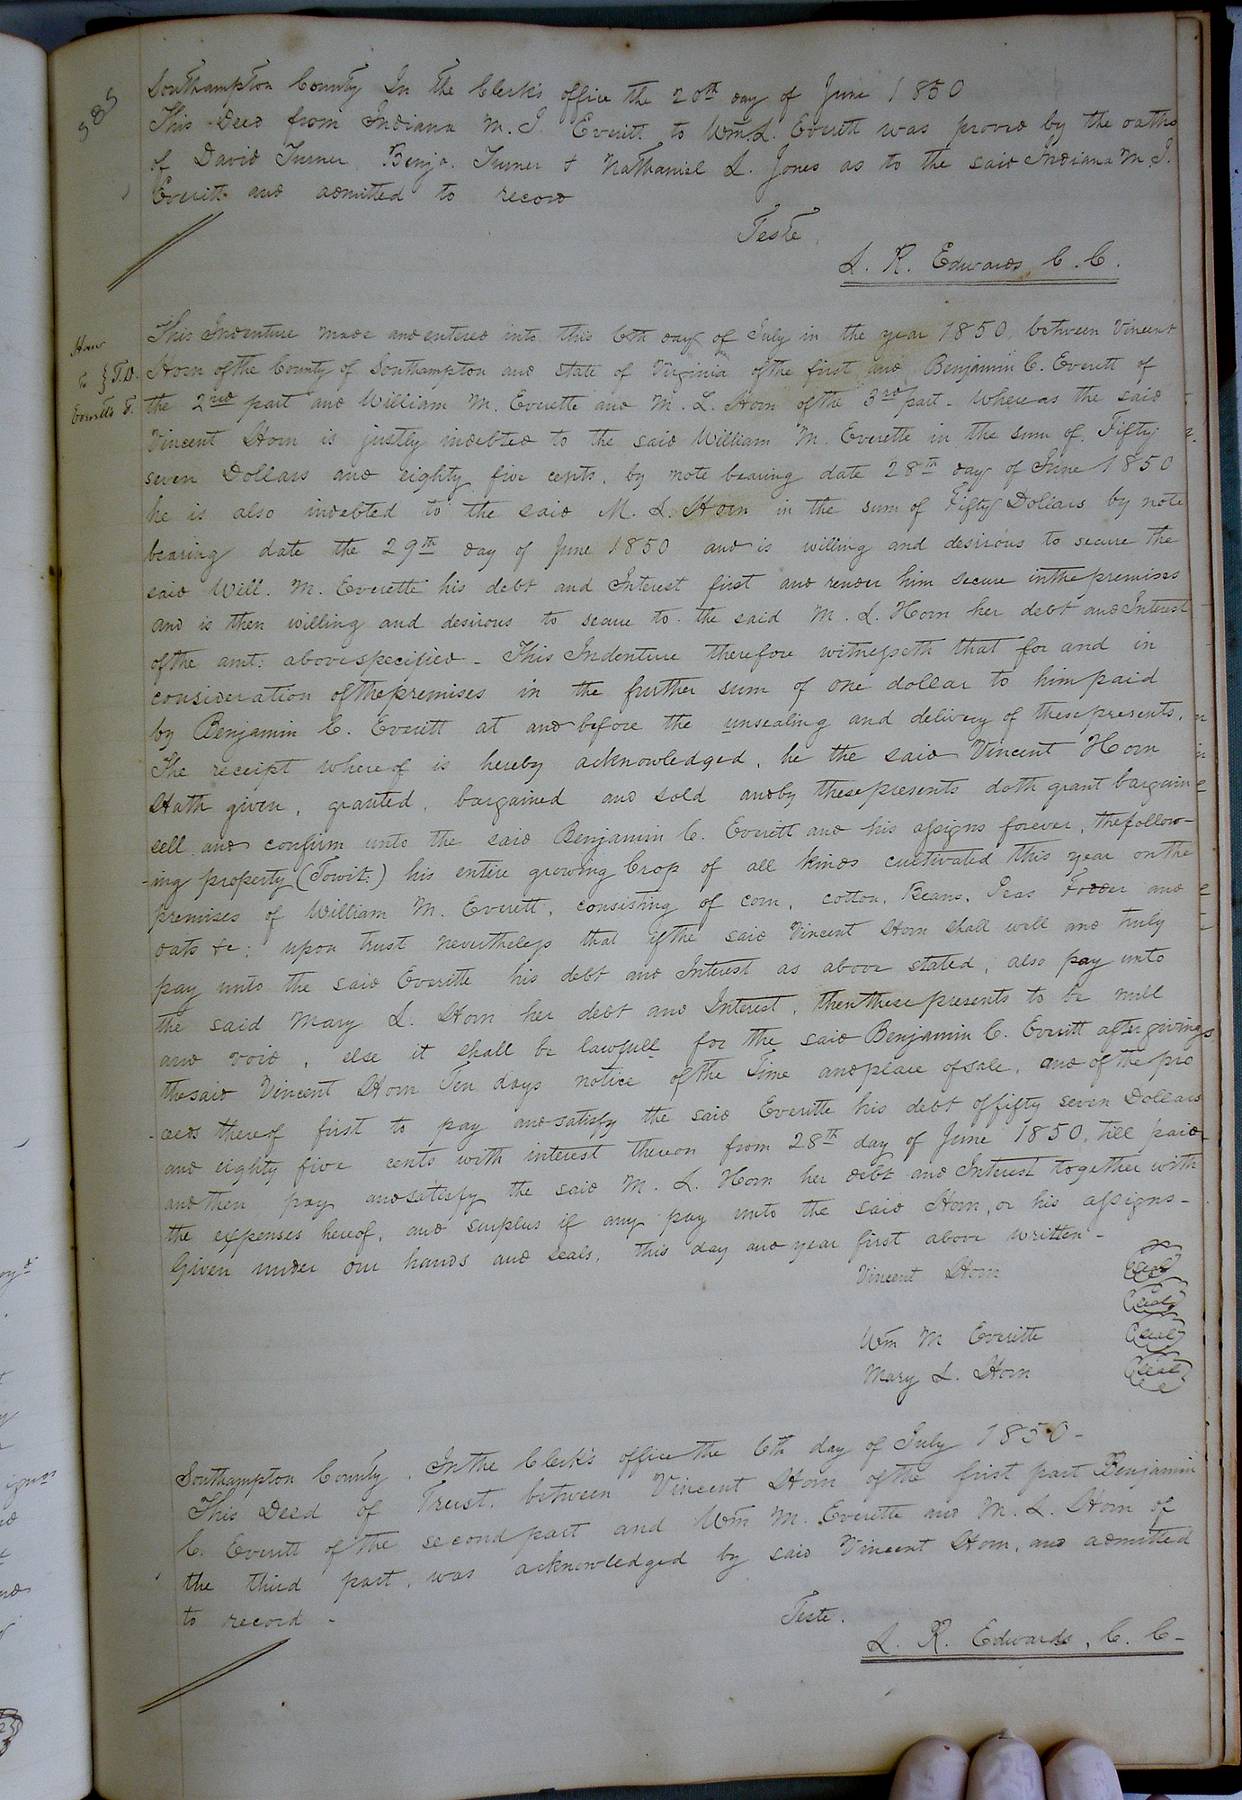 385
Southampton County In the Clerk's office the 20th day of June 1850
This Deed from Indiana M. J. Everitt to Wm L. Everett was proved by the oaths
of David Turner Benja. Turner & Nathaniel L. Jones as to the said Indiana M. J.
Everitt and admitted to record
Teste,
L. R. Edwards C. C.
Horn
to } T.D.
Everitts T.
This Indenture made and entered into this 6th day of July in the year 1850, between Vincent
Horn of the County of Southampton and state of Virginia of the first and Benjamin C. Everitt of
the 2nd part and William M. Everette and M. L. Horn of the 3rd part - Whereas the said
Vincent Horn is justly indebted to the said William M. Everette in the sum of Fifty
seven Dollars and eighty five cents, by note bearing date 28th day of June 1850
he is also indebted to the said M. L. Horn in the sum of Fifty Dollars by note
bearing date the 29th day of June 1850 and is willing and desirous to secure the
said Will. M. Everette his debt and Interest first and render him secure in the premises
and is then willing and desirous to secure to the said M. L. Horn her debt and Interest
of the amt: above specified - This Indenture therefore witnesseth that for and in
consideration of the premises in the further sum of one dollar to him paid
by Benjamin C. Everitt at and before the unsealing and delivery of these presents,
The receipt whereof is hereby acknowledged, he the said Vincent Horn
Hath given, granted, bargained and sold and by these presents doth grant bargain
sell and confirm unto the said Benjamin C. Everitt and his assigns forever, the follow-
-ing property (Towit:) his entire growing Crop of all kinds cultivated this year on the
premises of William M. Everett, consisting of corn, cotton, Beans, Peas Fodder and
oats &c; upon trust nevertheless that if the said Vincent Horn shall well and truly
pay unto the said Everitte his debt and Interest as above stated, also pay unto
the said Mary L. Horn her debt and Interest, then these presents to be null
and void, else it shall be lawfull for the said Benjamin C. Everitt after giving
the said Vincent Horn Ten days notice of the Time and place of sale, and of the pro
-ceeds thereof first to pay and satisfy the said Everitte his debt of fifty seven Dollars
and eighty five cents with interest thereon from 28th day of June 1850, till paid
and then pay and satisfy the said M. L. Horn her debt and Interest together with
the expenses hereof, and surplus if any pay unto the said Horn, or his assigns -
Given under our hands and seals, this day and year first above written -
Vincent Horn (seal)
(seal)
Wm M Everitte (seal)
Mary L. Horn (seal)
Southampton County. In the Clerk's office the 6th day of July 1850 -
This Deed of Trust, between Vincent Horn of the first part Benjamin
C. Everitt of the second part and Wm M. Everitte and M. L. Horn of
the third part, was acknowledged by said Vincent Horn, and admitted
to record -
Teste.
L. R. Edwards, C. C -